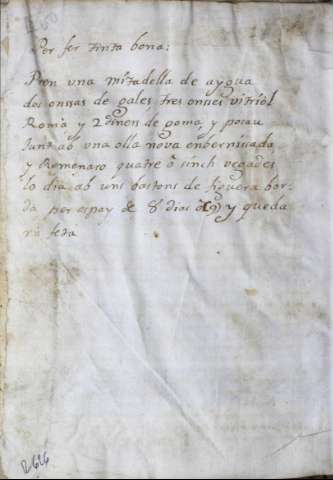 Per fer tinta bona:
Pren una mitadella de aygua
dos onssas de gales tres onsses vitriol
Romà y 2 diners de goma, y posau
junt ab vna olla nova enbernissada
y Remenaro quatre ò sinch vegades
lo dia ab uns bastons de figuera bor-
da per espay de 8 dias ò 9 y queda
rà feta
2626